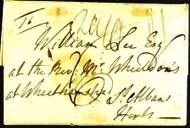 To
William Lee Esq
at the Revd Mr Wheeldon's
at Wheathamstead
St Albans
Herts